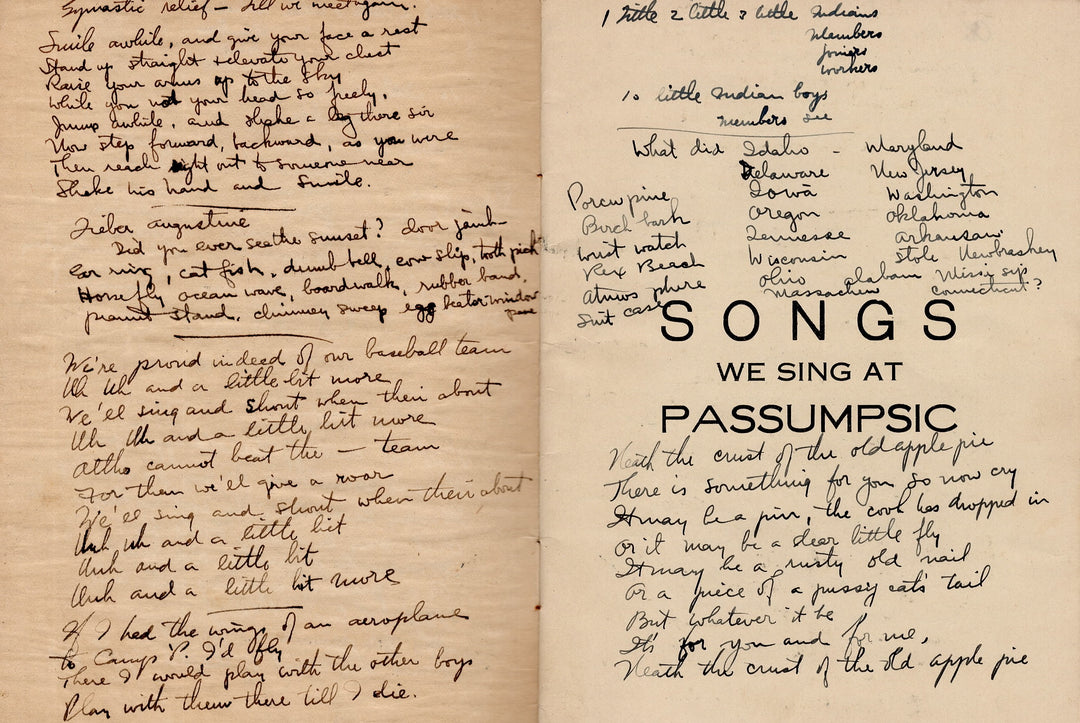 Gymnastic relief — Till we meet again.
Smile awhile, and give your face a rest
Stand up straight & elevate your chest
Raise your arms up to the sky
While you nod your head so freely,
Jump awhile, and shake a leg there sir
Now step forward, backward, as you were
Then reach right out to someone near
Shake his hand and Smile.
Lieber augustine
Did you ever see the sunset? door jamb
Ear ring, cat fish, dumb bell, cow slip, tooth pick
Horsefly, ocean wave, boardwalk, rubber band,
peanut stand, chimney sweep egg beater window
pane
We're proud indeed of our baseball team
Uh Uh and a little bit more
We'll sing and shout when their about
Uh Uh and a little bit more
Altho cannot beat the — team
For them we'll give a roar
We'll sing and shout when their about
Unh uh and a little bit
Unh and a little bit
Unh and a little bit more
If I had the wings of an aeroplane
to Camp P. I'd fly
There I would play with the other boys
Play with them there till I die.
1 little 2 little 3 little Indians
Plumbers
Joiners
Workers
10 little Indian boys
members see
What did Idaho - Maryland
Delaware New Jersey
Porcupine Iowa Washington
Birch bark Oregon Oklahoma
Wrist watch Tennessee Arkansaw
Rex Beach Wisconsin stole Newbraskey
Atmosphere Ohio alabam Missi sip
Suit case Massachew connecticut?
SONGS
WE SING AT
PASSUMPSIC
Neath the crust of the old apple pie
There is something for you so now cry
It may be a pin, the cook has dropped in
Or it may be a dear little fly
It may be a rusty old nail
Or a piece of a pussy cat's tail
But whatever it be
It's for you and for me,
Neath the crust of the old apple pie